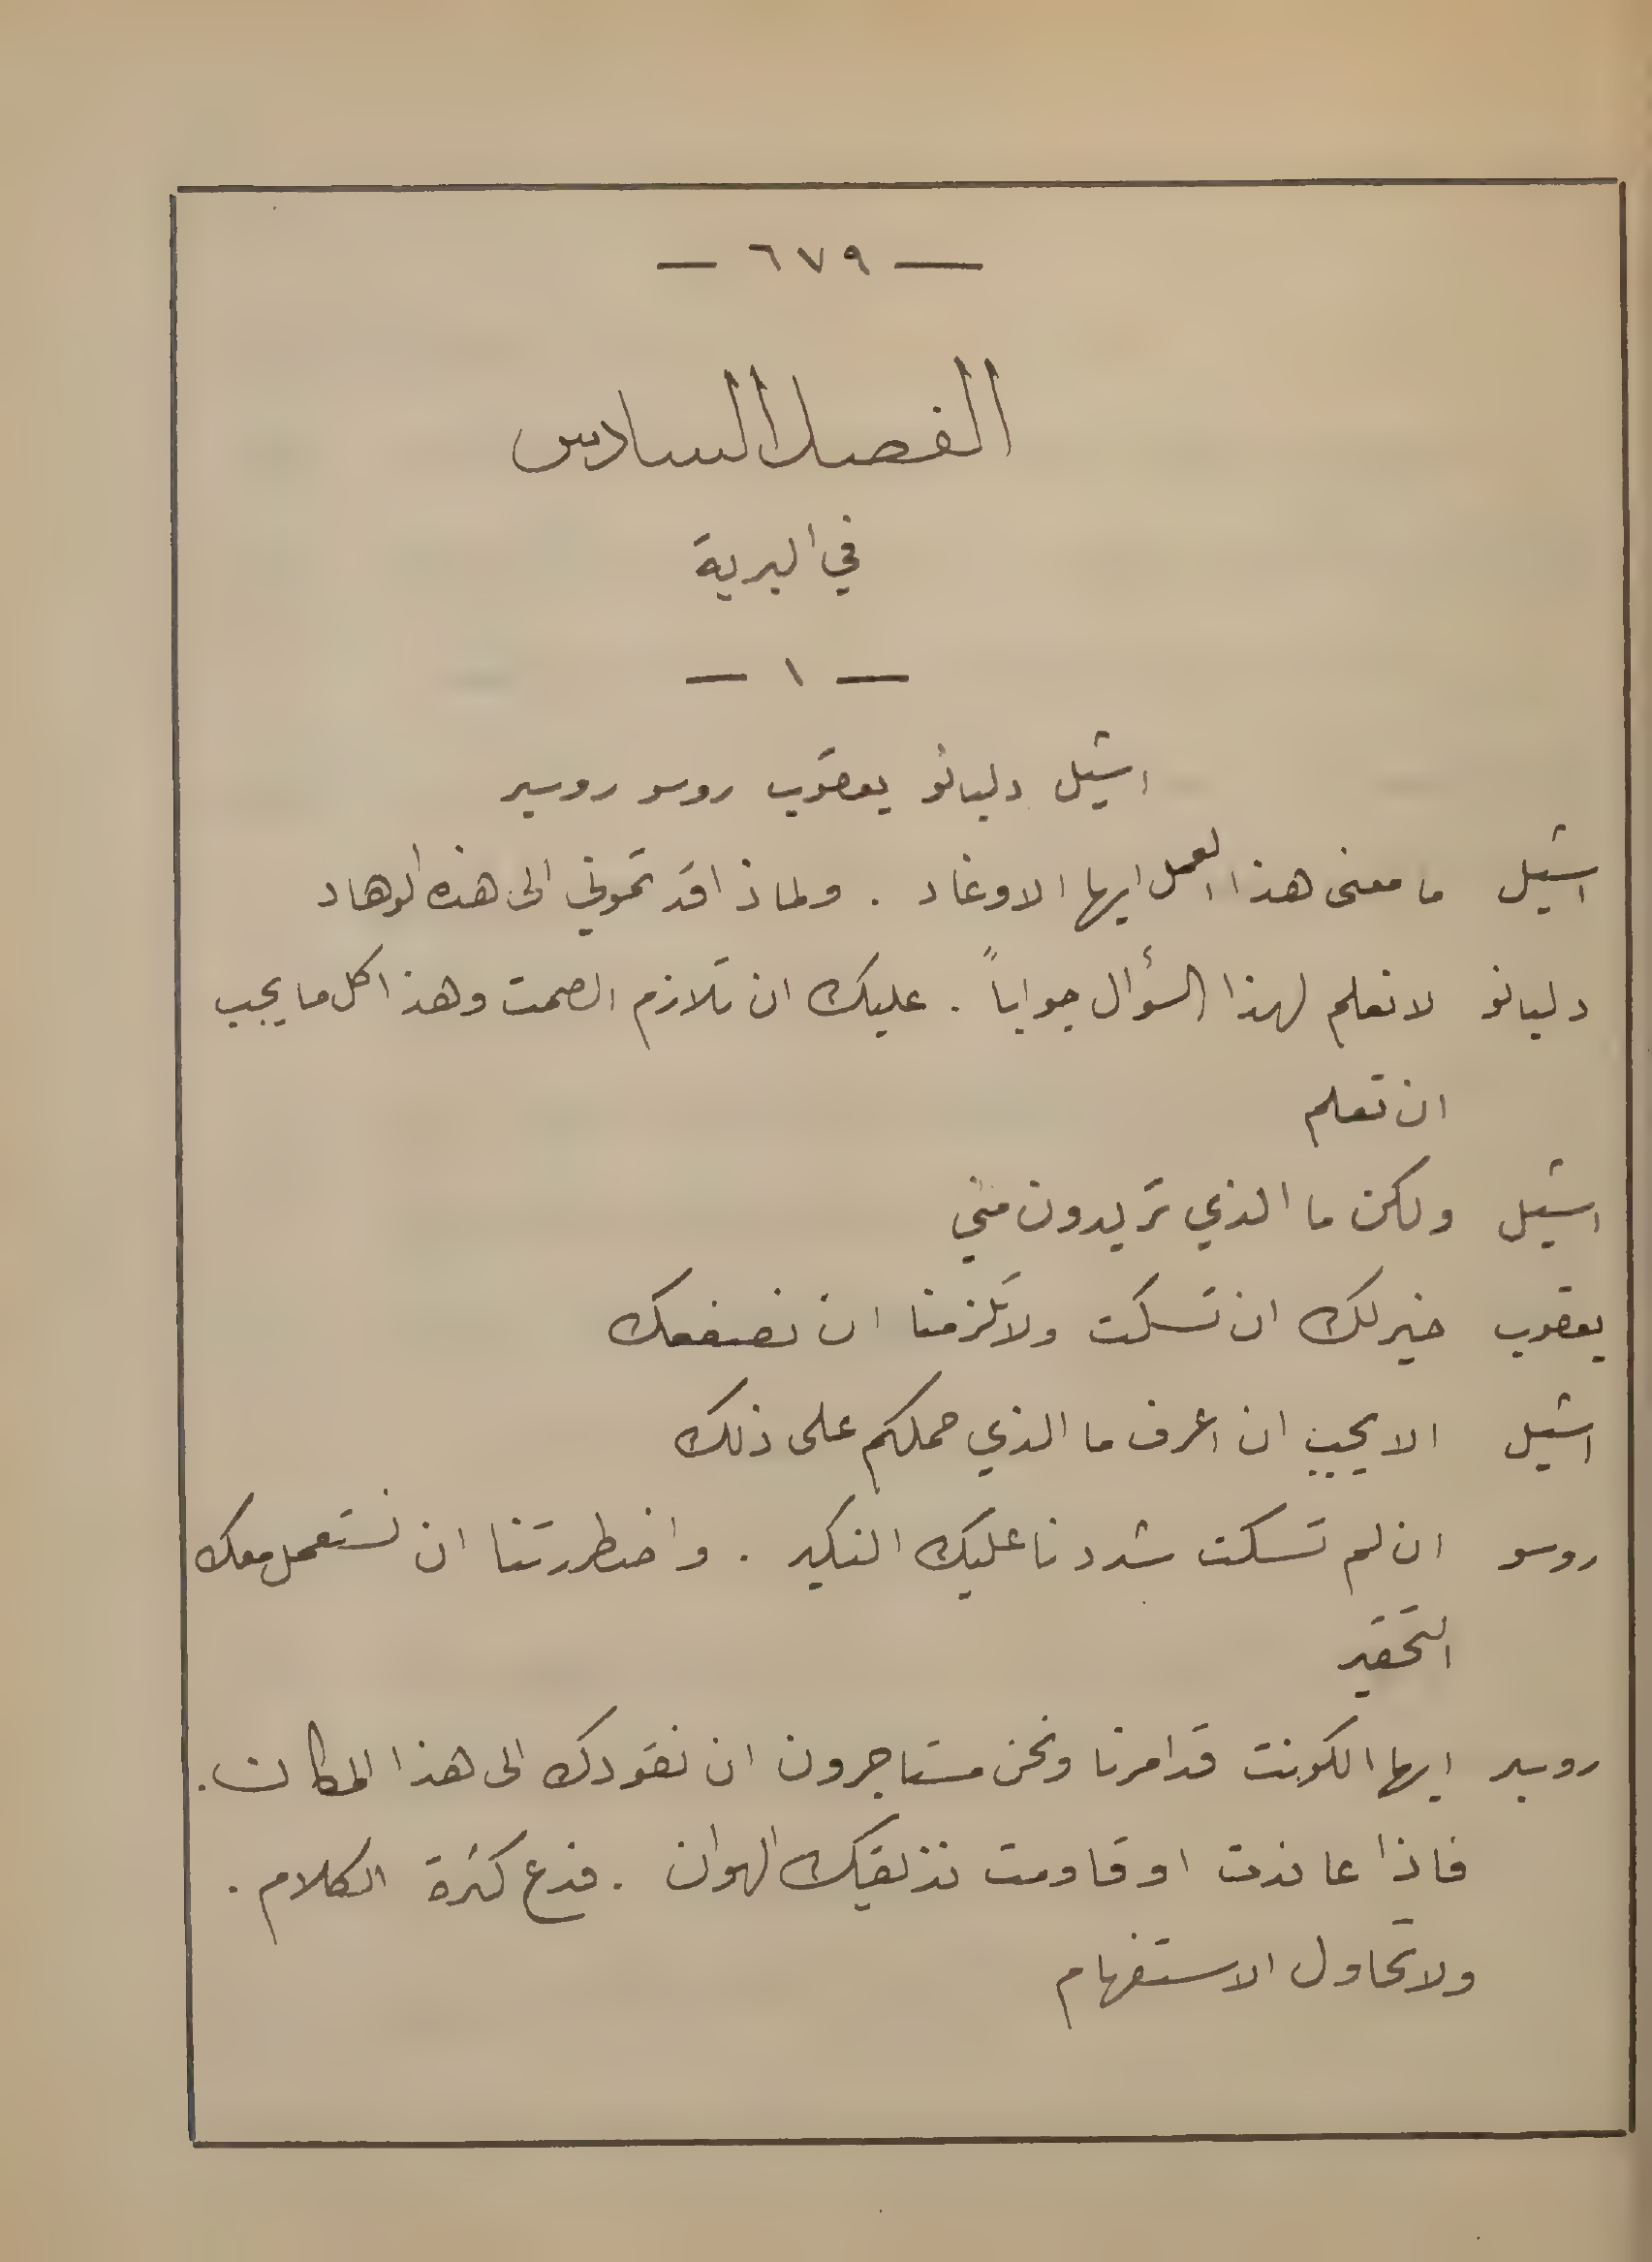 — ٦٧٩ —
الفصل السادس
في البرية
— ١ —
اشيل دلبانو يعقوب روسو روبير
اشيل ما معنى هذا العمل ايها الاوغاد . ولماذا قدتموني الى هذه الوهاد
دلبانو لا نعلم لهذا السؤال جواباً . عليك ان تلازم الصمت وهذا كل ما يجب
ان تعلم
اشيل ولكن ما الذي تريدون مني
يعقوب خير لك ان تسكت ولا تلزمنا ان نصفعك
اشيل الا يجب ان اعرف ما الذي حملكم على ذلك
روسو ان لم تسكت شددنا عليك النكير . واضطررتنا ان نستعمل معك
التحقير
روبير ايها الكونت قد امرنا ونحن مستاجرون ان نقودك الى هذا المكان .
فاذا عاندت او قاومت نذيقك الهوان . فدع كثرة الكلام .
ولا تحاول الاستفهام